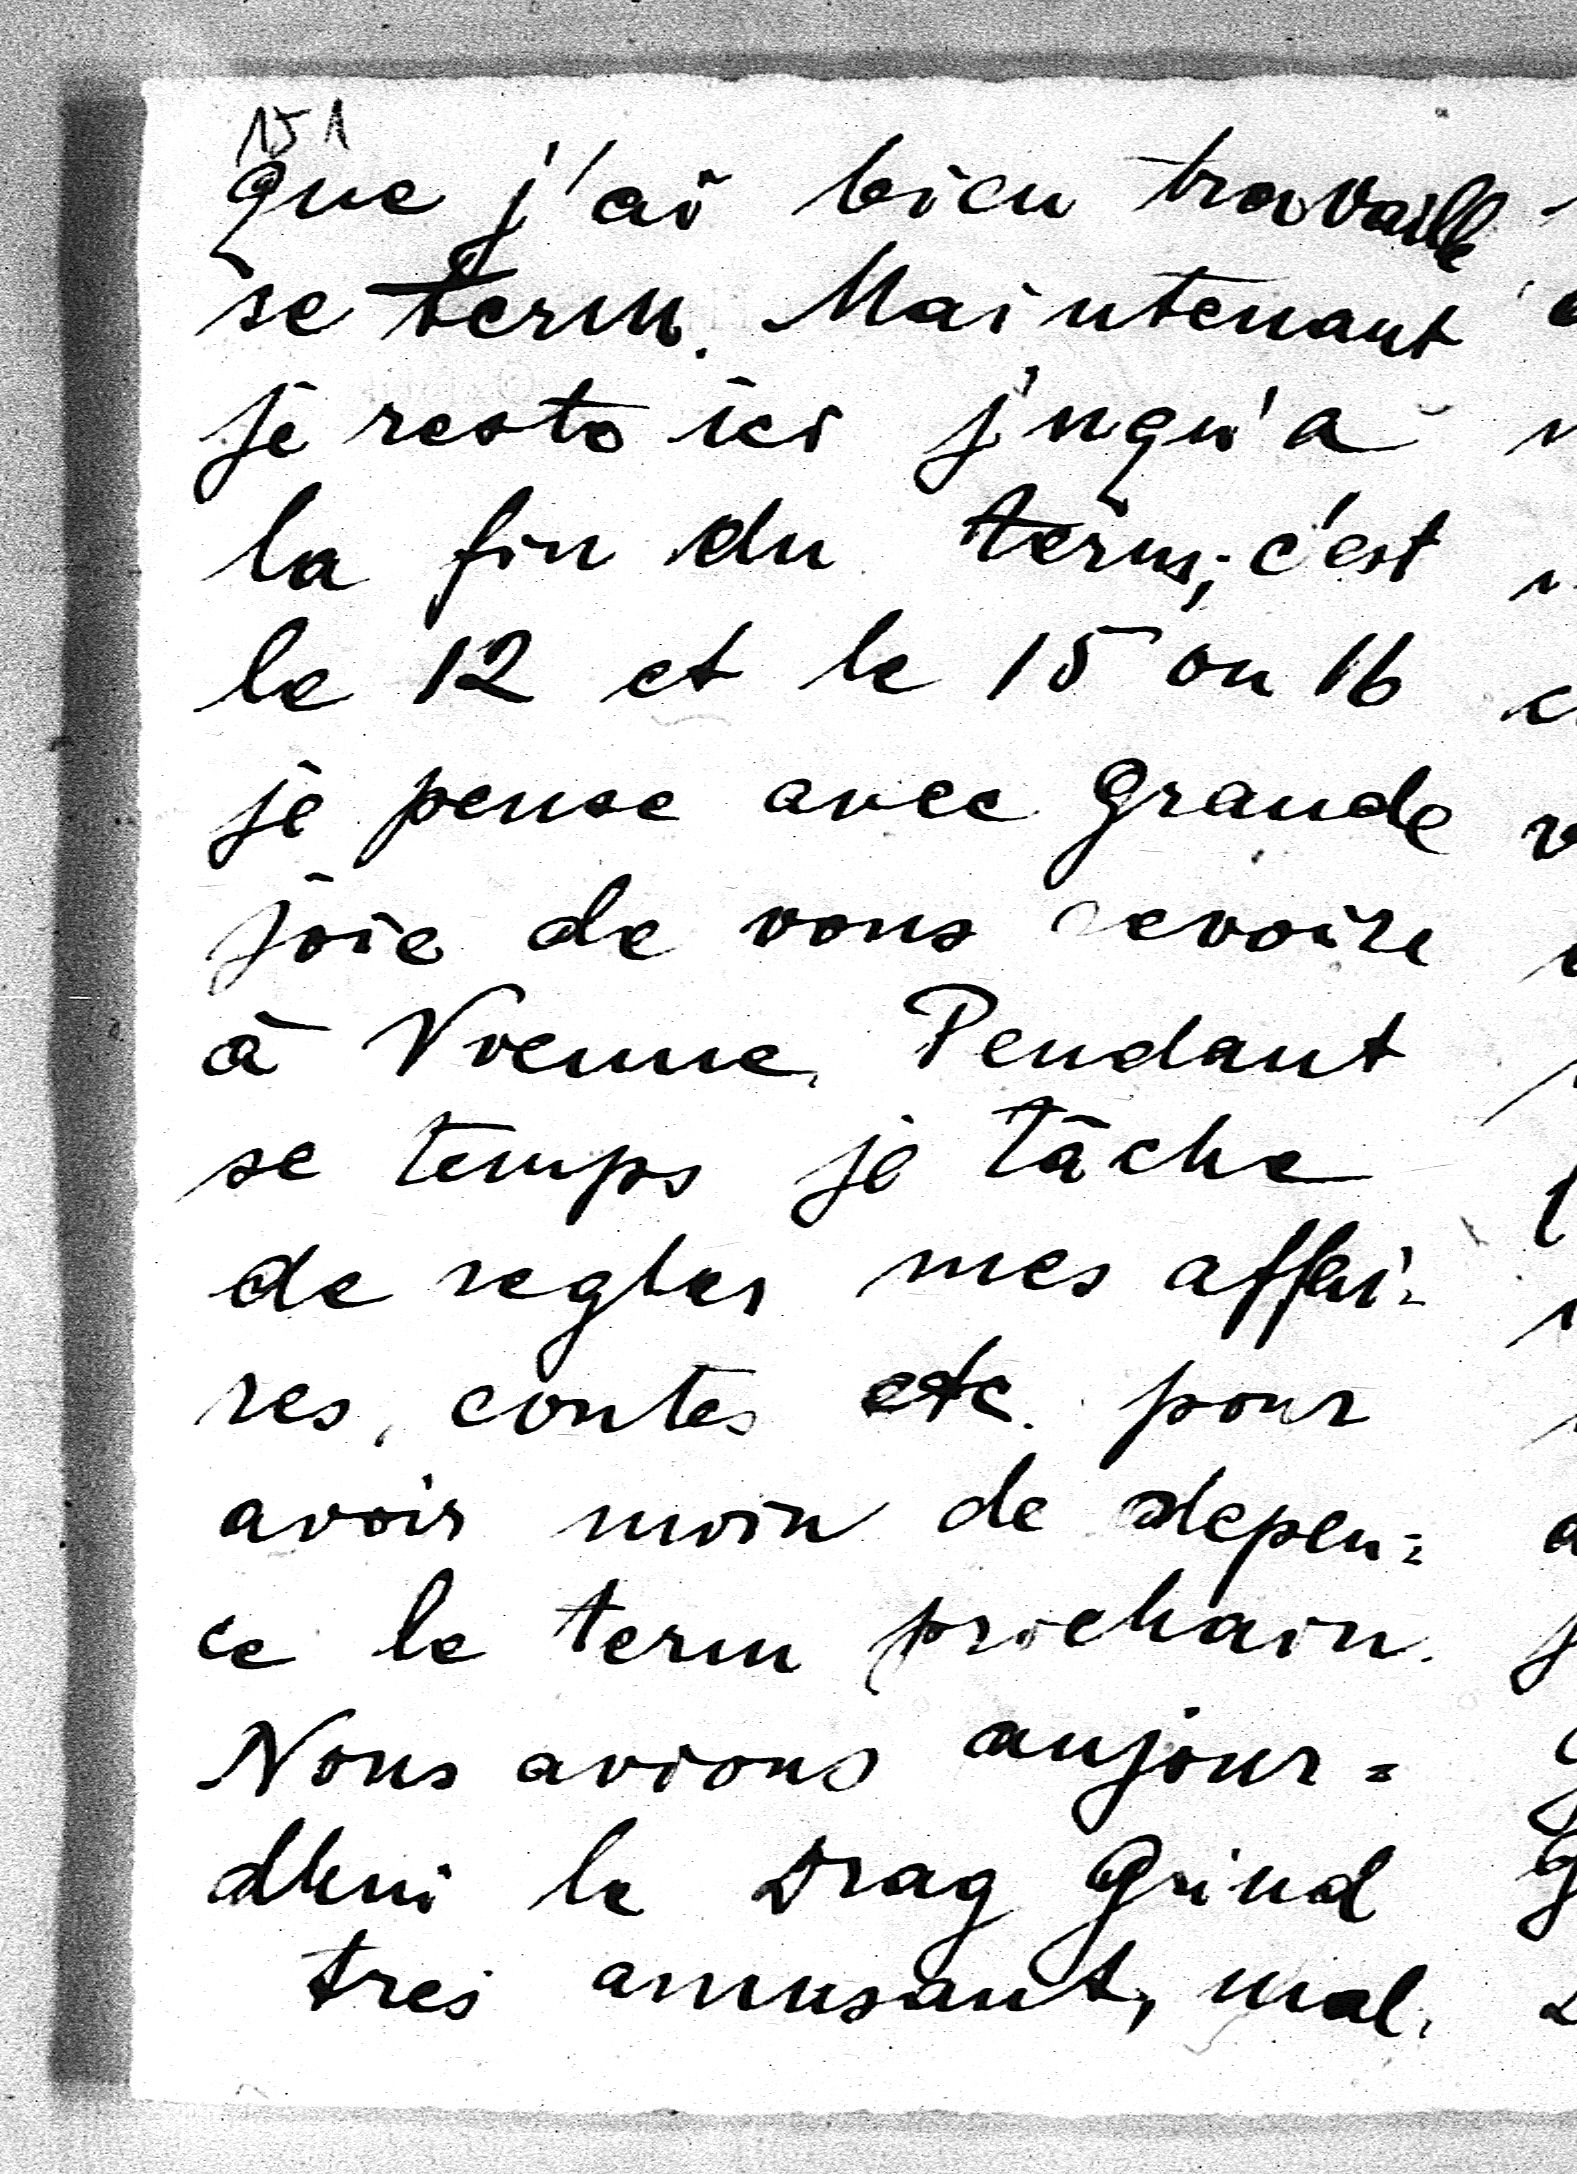 151
que j'ai bien travaille
se term. Maintenant
je reste ici j'uqu'a
la fin du term, c'est
le 12 et le 15 ou 16
je pense avec grande
joie de vous revoire
à Vienne. Pendant
se temps je tâche
de regler mes affai-
res, contes etc. pour
avoir moin de depen=
ce le term prochain.
Nous avions aujour=
dhui le Drag Grind
tres amusant, mal.